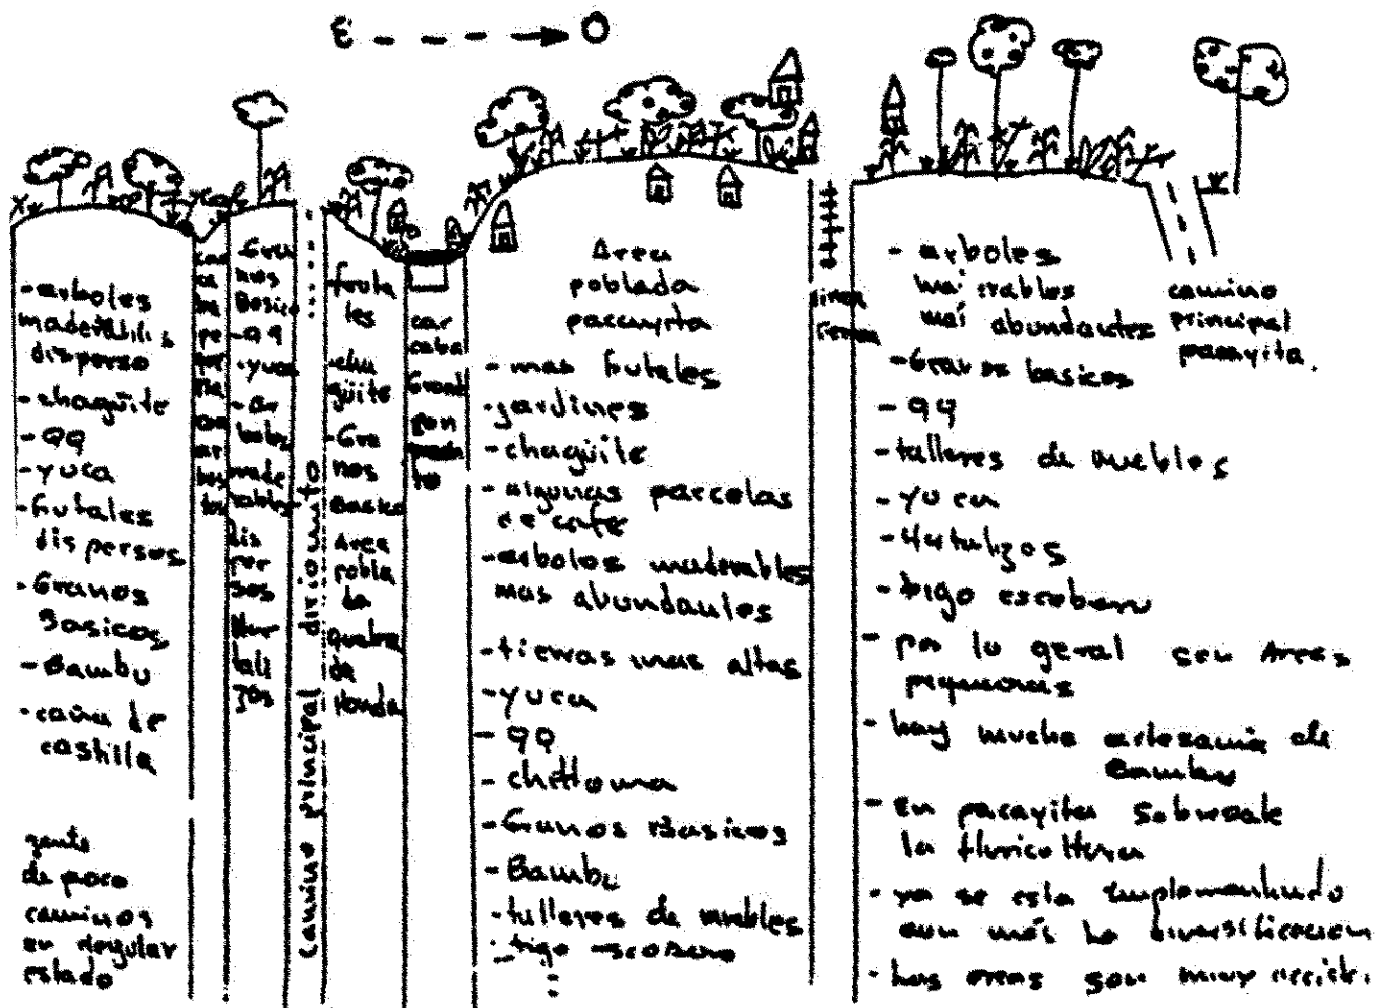 E O
- arboles
disperso
- chagüite
- qq
- yuca
- frutales
dispersos
- Granos
Basicos
- Bambu
- caña de
castilla
gente
de poco
caminos
en
estado
- Granos
Basico
- qq
- yuca
dis
per
sos
Hor
tali
zas
camino principal diriomito
- fruta
les
- cha
güite
- Gra
nos
Basico
Area
pobla
da
quebra
da
Honda
car
caba
Area
poblada
pacayita
- mas frutales
- jardines
- chagüite
- algunas parcelas
de cafe
- arboles maderables
mas abundantes
- tierras mas altas
- yuca
- qq
- chiltoma
- Granos Basicos
- Bambu
- talleres de muebles
- trigo escobero
- arboles
maderables
mas abundantes
- Granos basicos
- qq
- talleres de muebles
- yuca
- Hortalizas
- trigo escobero
- por lo geral son Areas
pequeñas
- hay mucha artesania de
Bambu
- En pacayita Sobresale
la floricultura
- ya se esta implementando
aun más la diversificacion
- las areas son muy
camino
principal
pacayita.